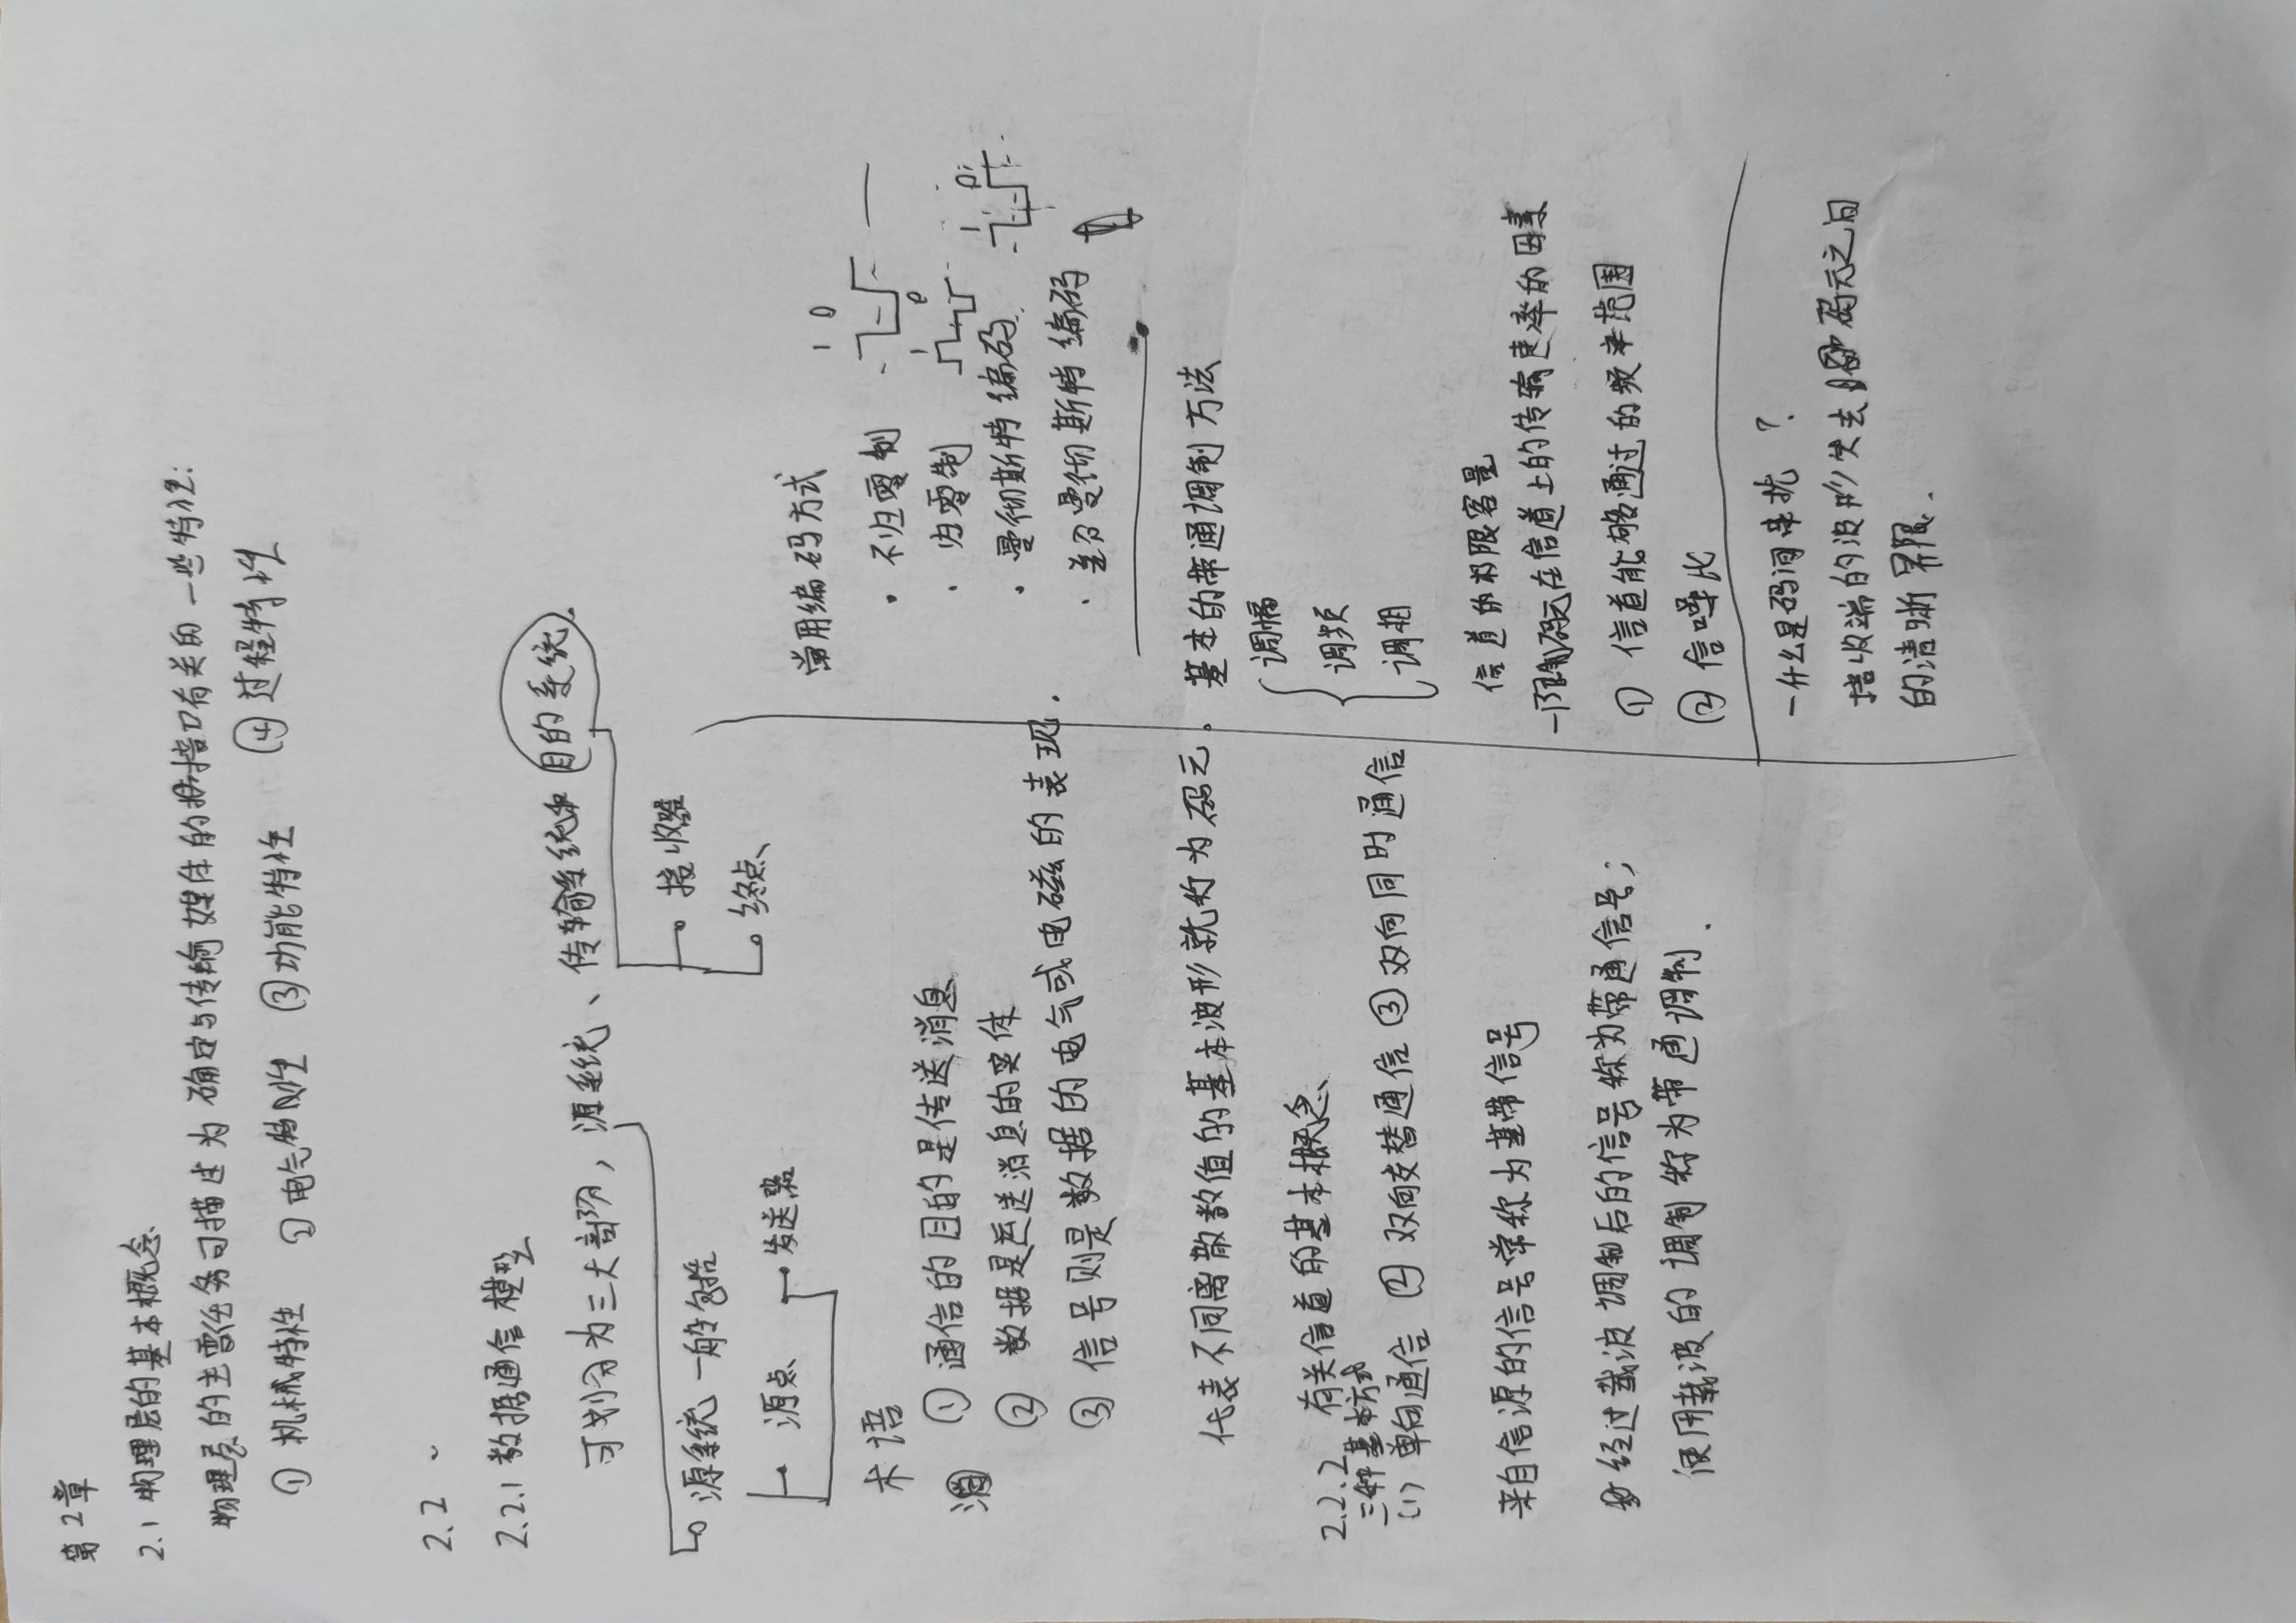 第2章
2.1 物理层的基本概念
物理层的主要任务可描述为 确定与传输媒体的接口有关的一些特性:
① 机械特性 ② 电气特性 ③ 功能特性 ④ 过程特性
2.2 ~
2.2.1 数据通信模型
可划分为三大部分, 源系统、传输系统和目的系统.
接收器
源系统 一般包括
终点
源点 发送器
术语
① 通信的目的是传送消息
消
② 数据是运送消息的实体
③ 信号则是数据的电气或电磁的表现.
代表不同离散数值的基本波形就称为码元。
2.2.2 有关信道的基本概念
三种基本方式
(1) 单向通信 ② 双向交替通信 ③ 双向同时通信
来自信源的信号常称为基带信号
经过载波调制后的信号称为带通信号;
使用载波的调制称为带通调制.
常用编码方式
1 0
· 不归零制
1 0
· 归零制
1 0
· 曼彻斯特编码
· 差分曼彻斯特编码
基本的带通调制方法
调幅
调频
调相
信道的极限容量
一限制码元在信道上的传输速率的因素
① 信道能够通过的频率范围
② 信噪比
一什么是码间串扰 ?
接收端的波形失去 码元之间
的清晰界限.